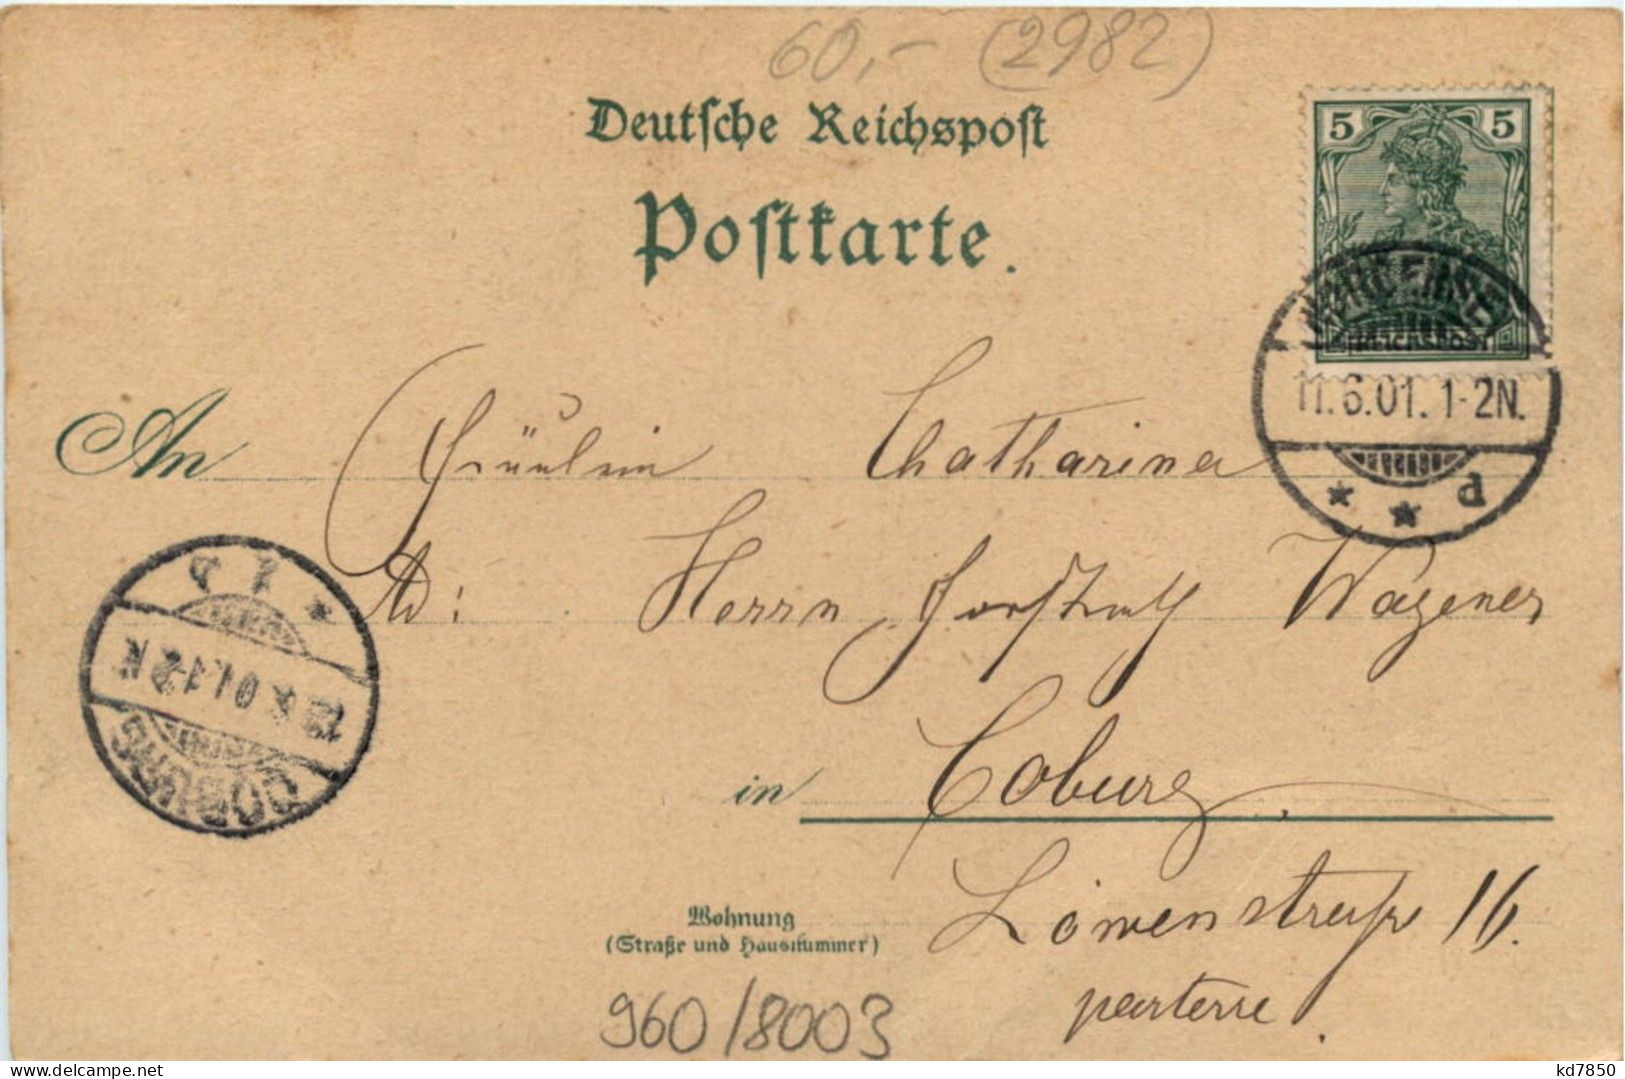 60,- (2982)
Deutsche Reichspost
Postkarte.
5 5
REICHSPOST
11.6.01. 1-2N.
* * d
An Fräulein Chatharina
Ad: Herrn Forstrath Wagener
01.1-2N
COBURG
in Coburg
Wohnung
(Straße und Hausnummer)
Löwenstraße 16.
parterre.
960/8003
kd7850